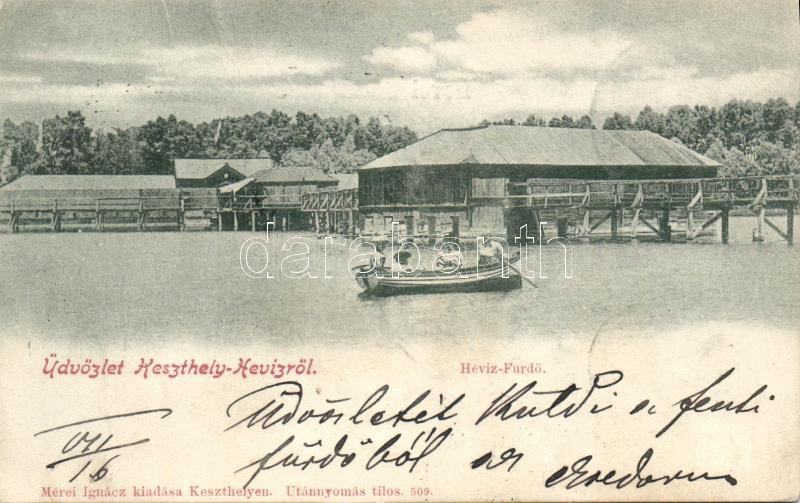 darabanth
Üdvözlet Keszthely-Hevizről.
Héviz-Furdő.
VII
16
Üdvösletét küldi a fenti
fürdőből az
Mérei Ignácz kiadása Keszthelyen. Utánnyomás tilos. 509.